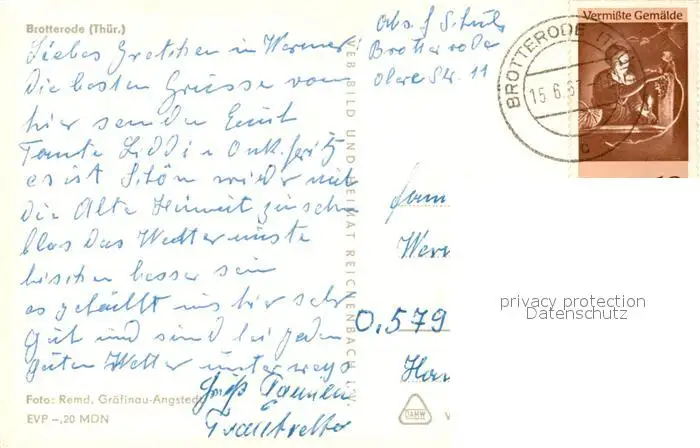 Brotterode (Thür.)
Liebes Gretchen u Werner
Die besten Grüsse von
hier senden Euch
Tante Liddi u Onk. Fritz
es ist Schön wieder mal
die Alte Heimat zu sehn
blos das Wetter müste
bischen besser sein
es gefällt uns hier sehr
gut und sind bei jeden
guten Wetter unterwegs
Foto: Remd, Gräfinau-Angstedt
EVP -,20 MDN
VEB BILD UND HEIMAT REICHENBACH I.V.
Abs. F Schulz
Brotterode
obere Str. 11
Vermißte Gemälde
BROTTERODE (TH
15.6.67
c
Fam
Wern
0,579
DAHW
V
privacy protection
Datenschutz